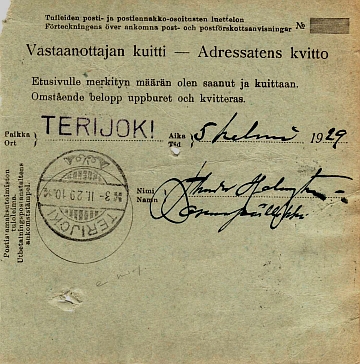 Tulleiden posti- ja postiennakko-osoitusten luettelon
Förteckningens över ankomna post- och postförskottsanvisningar № 
Vastaanottajan kuitti — Adressatens kvitto
Etusivulle merkityn määrän olen saanut ja kuittaan.
Omstående belopp uppburet och kvitteras.
Paikka
Ort
TERIJOKI
Aika
Tid
5 helmi 1929
Nimi
Namn
Postiansaksotoimiston
tuloleima.
Utbetalningspostanstaltens
ankomststämpel.
TERIJOKI
3-II.29.10